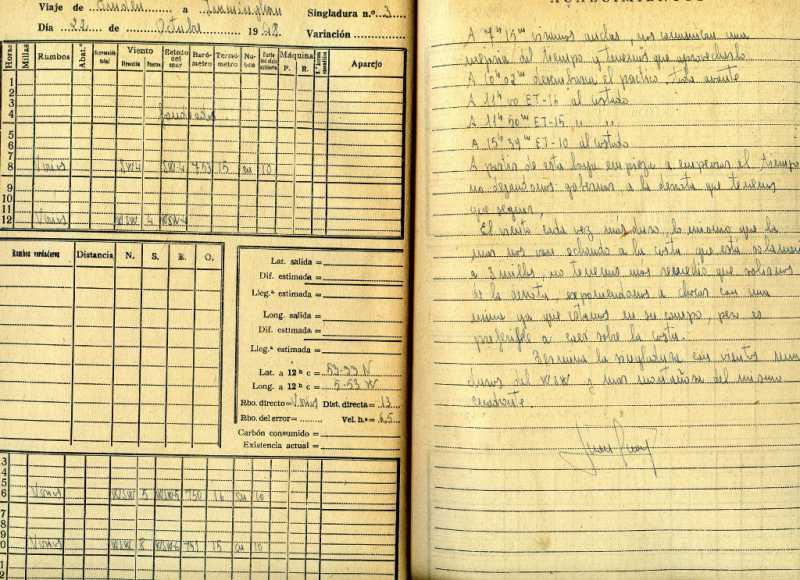 Viaje de a
Singladura n.º 3
Día 22 de Octubre de 19
Variación
Horas Millas Rumbos Abat.º Corrección total Viento Estado del mar Baró-metro Termó-metro Nu-bes Máquina Aparejo
Dirección Fuerza P. R.
1
2
3
4
5
6
7
8 Varios SW4 SW-4 753 15 cu 10
9
10
11
12 Varios WSW 4 WSW-4
Rumbos verdaderos Distancia N. S. E. O.
Lat. salida =
Dif. estimada =
Lleg.ª estimada =
Long. salida =
Dif. estimada =
Lleg.ª estimada =
Lat. a 12 h c = 53-39 N
Long. a 12 h c = 5-53 W
Rbo. directo = Varios Dist. directa = 13
Rbo. del error = Vel. h.ª = 6,5
Carbón consumido =
Existencia actual =
3
4
5
6 Varios WSW 5 WSW5 750 16 cu 10
7
8
9
0 Varios WSW 8 WSW-6 751 15 cu 10
1
2
ACAECIMIENTOS
A 7h 15m viramos anclas, nos comunican una
mejoria del tiempo y tenemos que aprovecharlo
A 10h 02m desembarca el practico. Toda avante
A 11h 00 ET-16 al costado
A 11h 50m ET-15 " "
A 15h 34m ET-10 al costado
A partir de esta hora empieza a empeorar el tiempo
no dejandonos gobernar a la derrota que tenemos
que seguir,
El viento cada vez más duro, lo mismo que la
mar nos van echando a la costa que esta solamente
a 3 millas, no tenemos mas remedio que salirnos
de la derrota, exponiendonos a chocar con una
mina ya que estamos en su campo, pero es
preferible a caer sobre la costa.
Termina la singladura con vientos muy
duros del WSW y mar montañosa del mismo
cuadrante